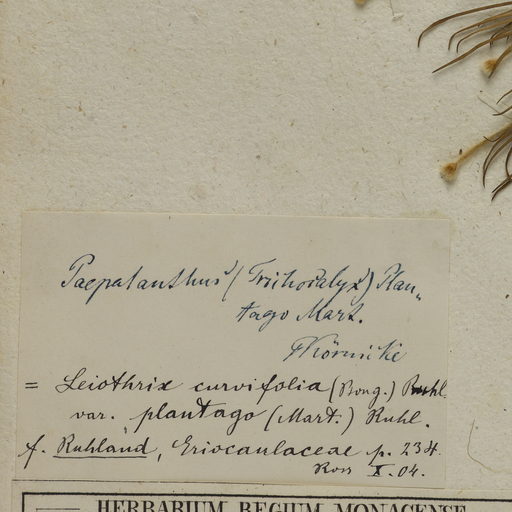 Paepalanthus (Trichocalyx) Plan-
tago Mart.
FKörnicke
= Leiothrix curvifolia (Bong.) Ruhl.
var. plantago (Mart.) Ruhl.
f. Ruhland, Eriocaulaceae p. 234.
Ross X. 04.
HERBARIUM REGIUM MONACENSE